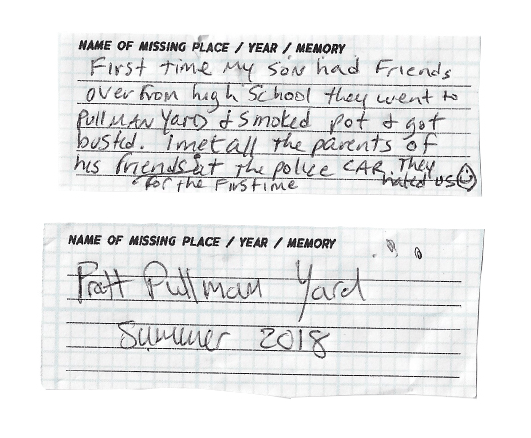 NAME OF MISSING PLACE / YEAR / MEMORY
First time my son had Friends
over from high School they went to
PullMAN Yard & Smoked pot & got
busted. I met all the parents of
his friends at the police CAR. They
for the First time hated us☺
NAME OF MISSING PLACE / YEAR / MEMORY
Pratt Pullman Yard
Summer 2018